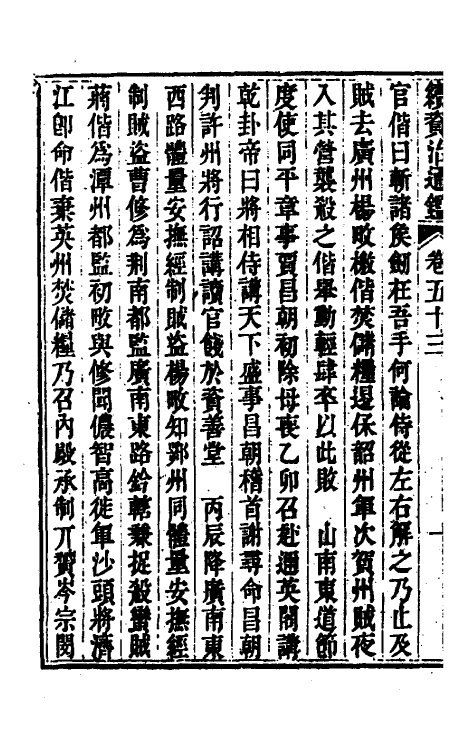 續資治通鑑 卷五十三
官偕曰斬諸侯劒在吾手何論侍從左右解之乃止及
賊去廣州楊畋檄偕焚儲糧退保韶州軍次賀州賊夜
入其營襲殺之偕舉動輕肆卒以此敗 山南東道節
度使同平章事賈昌朝初除母喪乙卯召赴邇英閣講
乾卦帝曰將相侍講天下盛事昌朝稽首謝尋命昌朝
判許州將行詔講讀官餞於資善堂 丙辰降廣南東
西路體量安撫經制賊盜楊畋知鄂州同體量安撫經
制賊盜曹修為荆南都監廣南東路鈐轄兼捉殺蠻賊
蔣偕為潭州都監初畋與修聞儂智高徙軍沙頭將濟
江卽命偕棄英州焚儲糧乃召內殿承制亓贇岑宗閔